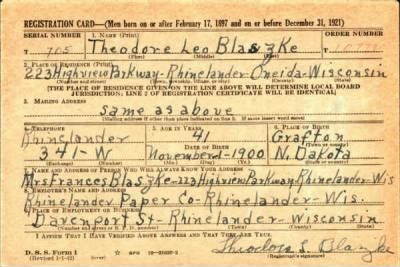 REGISTRATION CARD—(Men born on or after February 17, 1897 and on or before December 31, 1921)
SERIAL NUMBER 1. NAME (Print) ORDER NUMBER
T 705 Theodore Leo Blaszke
(First) (Middle) (Last)
2. PLACE OF RESIDENCE (Print)
223 Highview Parkway-Rhinelander-Oneida-Wisconsin
(Number and street) (Town, township, village, or city) (County) (State)
[THE PLACE OF RESIDENCE GIVEN ON THE LINE ABOVE WILL DETERMINE LOCAL BOARD
JURISDICTION; LINE 2 OF REGISTRATION CERTIFICATE WILL BE IDENTICAL]
3. MAILING ADDRESS
same as above
[Mailing address if other than place indicated on line 2. If same insert word same]
4. TELEPHONE 5. AGE IN YEARS 6. PLACE OF BIRTH
Rhinelander 41 Grafton
DATE OF BIRTH (Town or county)
341-W November-1-1900 N. Dakota
(Exchange) (Number) (Mo.) (Day) (Yr.) (State or country)
7. NAME AND ADDRESS OF PERSON WHO WILL ALWAYS KNOW YOUR ADDRESS
Mrs Frances Blaszke-223 Highview Parkway Rhinelander-Wis
8. EMPLOYER'S NAME AND ADDRESS
Rhinelander Paper Co-Rhinelander-Wis.
9. PLACE OF EMPLOYMENT OR BUSINESS
Davenport St-Rhinelander-Wisconsin
(Number and street or R. F. D. number) (Town) (County) (State)
I AFFIRM THAT I HAVE VERIFIED ABOVE ANSWERS AND THAT THEY ARE TRUE.
D. S. S. Form 1
(Revised 1-1-42) (over)
Theodore L. Blaszke